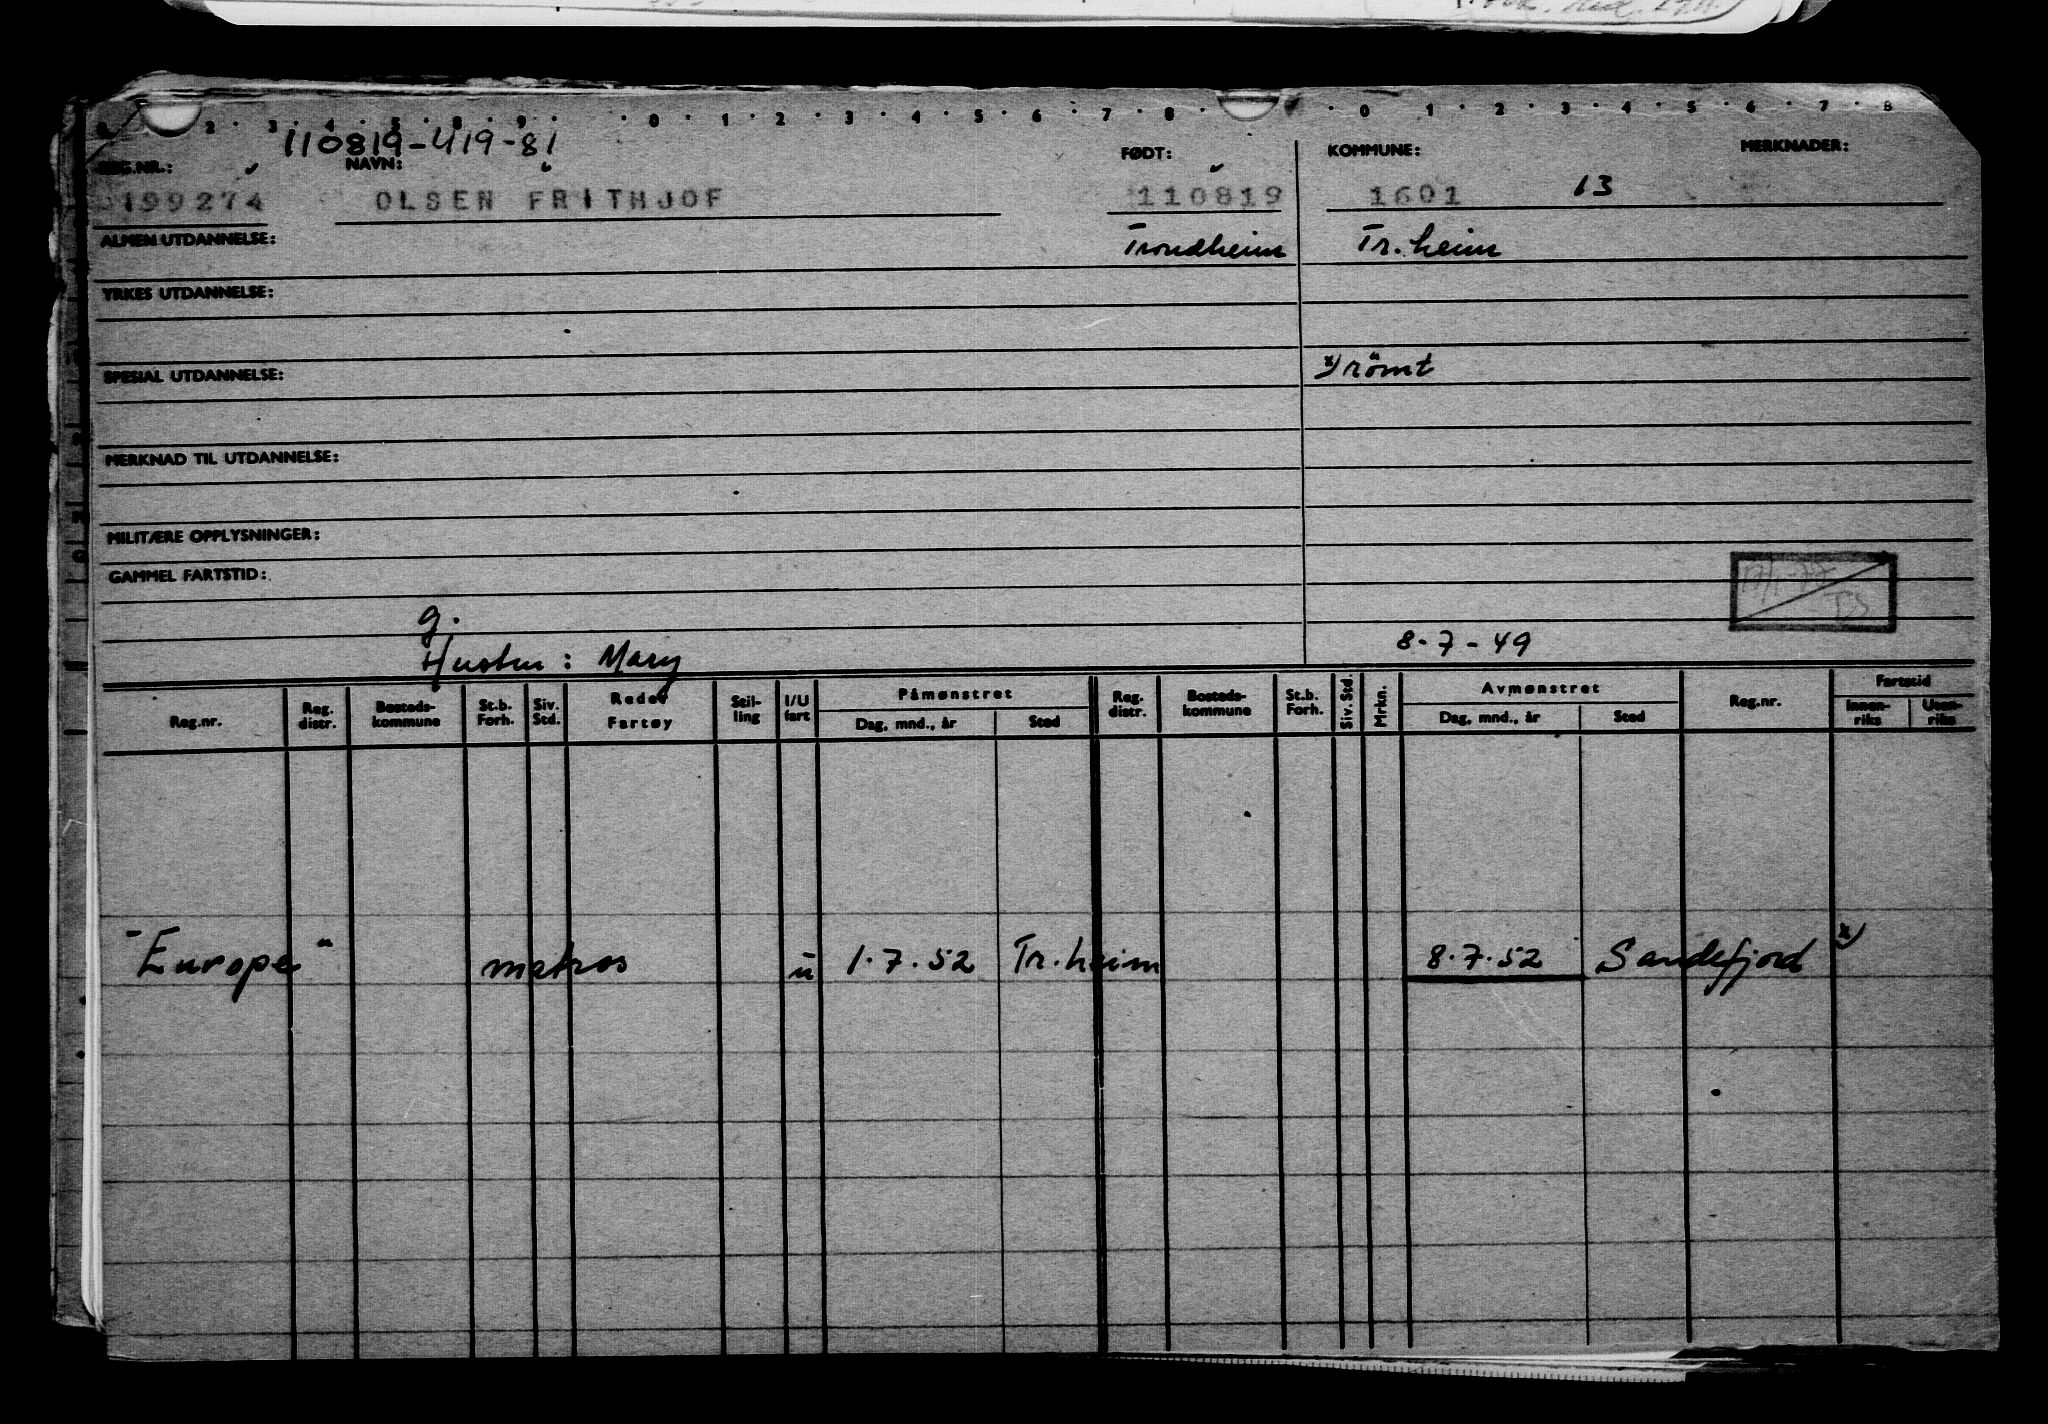 1 2 3 4 5 6 7 8 9 0 1 2 3 4 5 6 7 8 0 1 2 3 4 5 6 7 8
110819-419-81
REG.NR.: NAVN: FØDT: KOMMUNE: MERKNADER:
199274 OLSEN FRITHJOF 110819 1601 13
ALMEN UTDANNELSE: Trondheim Tr.heim
YRKES UTDANNELSE:
SPESIAL UTDANNELSE: x) römt
MERKNAD TIL UTDANNELSE:
MILITÆRE OPPLYSNINGER:
GAMMEL FARTSTID:
g.
Hustru: Mary 8-7-49
Reg.nr. Reg. distr. Bosteds-kommune St.b. Forh. Siv. Std. Rederi Fartøy Stil-ling I/U fart Påmønstret Dag, mnd., år Sted Reg. distr. Bosteds-kommune St.b. Forh. Siv. Std. Mrkn. Avmønstret Dag, mnd., år Sted Reg.nr. Fartstid Innen-riks Uten-riks
"Europe" matros u 1.7.52 Tr.heim 8.7.52 Sandefjord x)